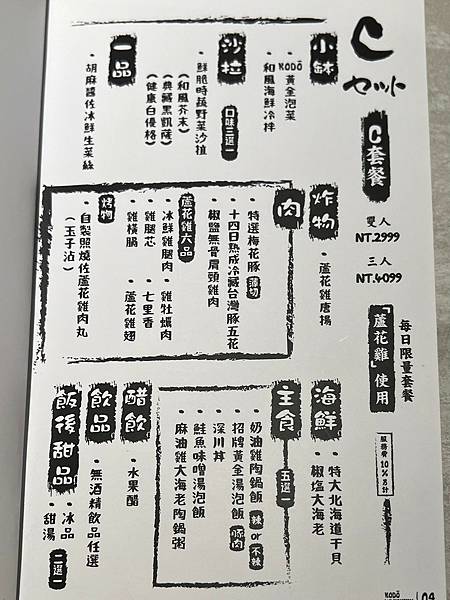 C
セット
C套餐
雙人
NT.2999
三人
NT.4099
每日限量套餐
「蘆花雞」使用
服務費10%另計
小缽
・KODŌ黃金泡菜
・和風海鮮冷拌
沙拉
・鮮脆時蔬野菜沙拉 口味三選一
(和風芥末)
(典藏黑凱薩)
(健康白優格)
一品
・胡麻醬佐冰鮮生菜絲
炸物
・蘆花雞唐揚
肉
・特選梅花豚 薄切
・十四日熟成冷藏台灣豚五花
・椒鹽無骨肩頸雞肉
蘆花雞六品
・冰鮮雞腿肉 ・雞牡蠣肉
・雞腿芯 ・七里香
・雞橫膈 ・蘆花雞翅
烤物
・自製照燒佐蘆花雞肉丸
(玉子沾)
海鮮
・特大北海道干貝
・椒塩大海老
主食 五選一
・奶油雞陶鍋飯 辣 or 不辣
・招牌黃金湯泡飯 豚肉
・深川丼
・鮭魚味噌湯泡飯
・麻油雞大海老陶鍋粥
醋飲
・水果醋
飲品
・無酒精飲品任選
飯後甜品
・冰品
・甜湯 二選一
KODŌ
04